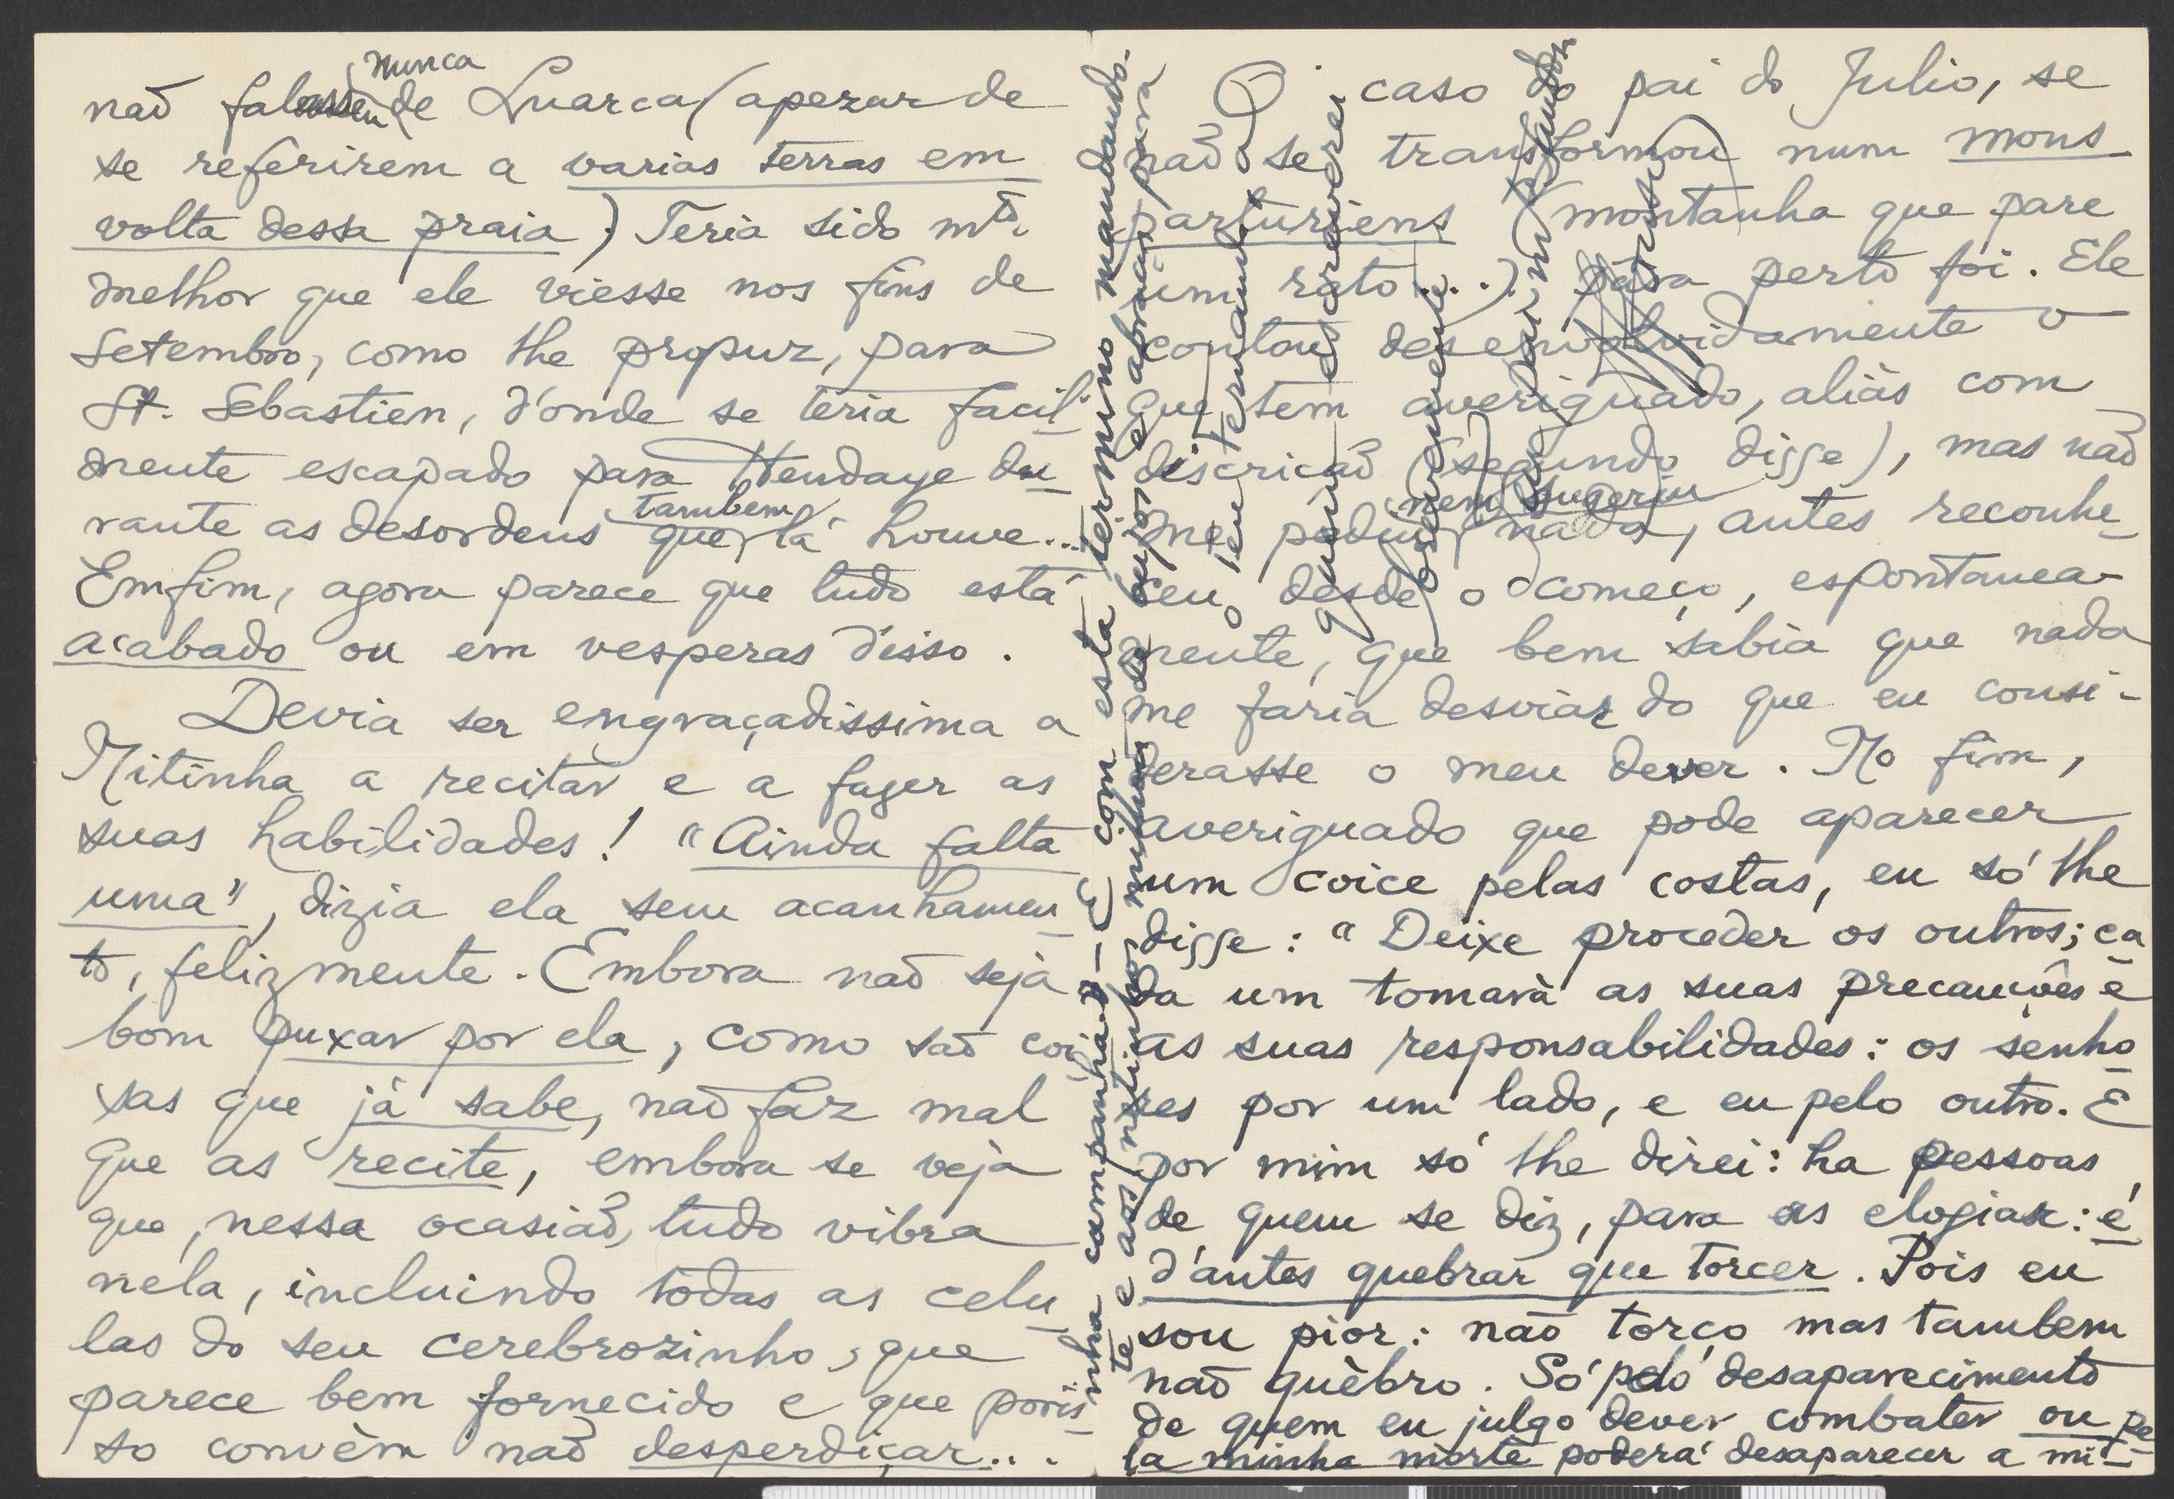 não falassem nunca de Luarca (apezar de
se referirem a varias terras em
volta dessa praia) Teria sido mto.
melhor que ele viesse nos fins de
Setembro, como lhe propuz, para
St. Sebastien, d'onde se teria facil-
mente escapado para Hendaye du-
rante as desordens que tambem lá houve...
Emfim, agora parece que tudo está
acabado ou em vesperas d'isso.
Devia ser engraçadissima a
Mitinha a recitar e a fazer as
suas habilidades! "Ainda falta
uma", dizia ela sem acanhamen-
to, felizmente. Embora não seja
bom puxar por ela, como são coi-
sas que já sabe, não faz mal
que as recite, embora se veja
que, nessa ocasião, tudo vibra
nela, incluindo todas as celu-
las do seu cerebrozinho, que
parece bem fornecido e que poris-
so convèm não desperdiçar...
O caso do pai do Julio, se
não se transformou num mons
parturiens (montanha que pare
um rato...) para perto foi. Ele
contou desenvolvidamente o
que tem averiguado, aliàs com
discrição (segundo disse), mas não
me pediu nem sugeriu nada, antes reconhe-
ceu, desde o começo, espontanea-
mente, que bem sabia que nada
me faria desviar do que eu consi-
derasse o meu dever. No fim,
averiguado que pode aparecer
um coice pelas costas, eu só lhe
disse: "Deixe proceder os outros; ca-
da um tomarà as suas precauções e
as suas responsabilidades: os senho-
res por um lado, e eu pelo outro. E
por mim só lhe direi: ha pessoas
de quem se diz, para as elogiar: é
d'antes quebrar que torcer. Pois eu
sou pior: não torço mas tambem
não quèbro. Só pelo desaparecimento
de quem eu julgo dever combater ou pe-
la minha morte poderá desaparecer a mi-
nha campanha." — E com esta termino mandando-
te e aos netinhos milhões de beijos e abraços para
o teu ternamente
quem escreveu